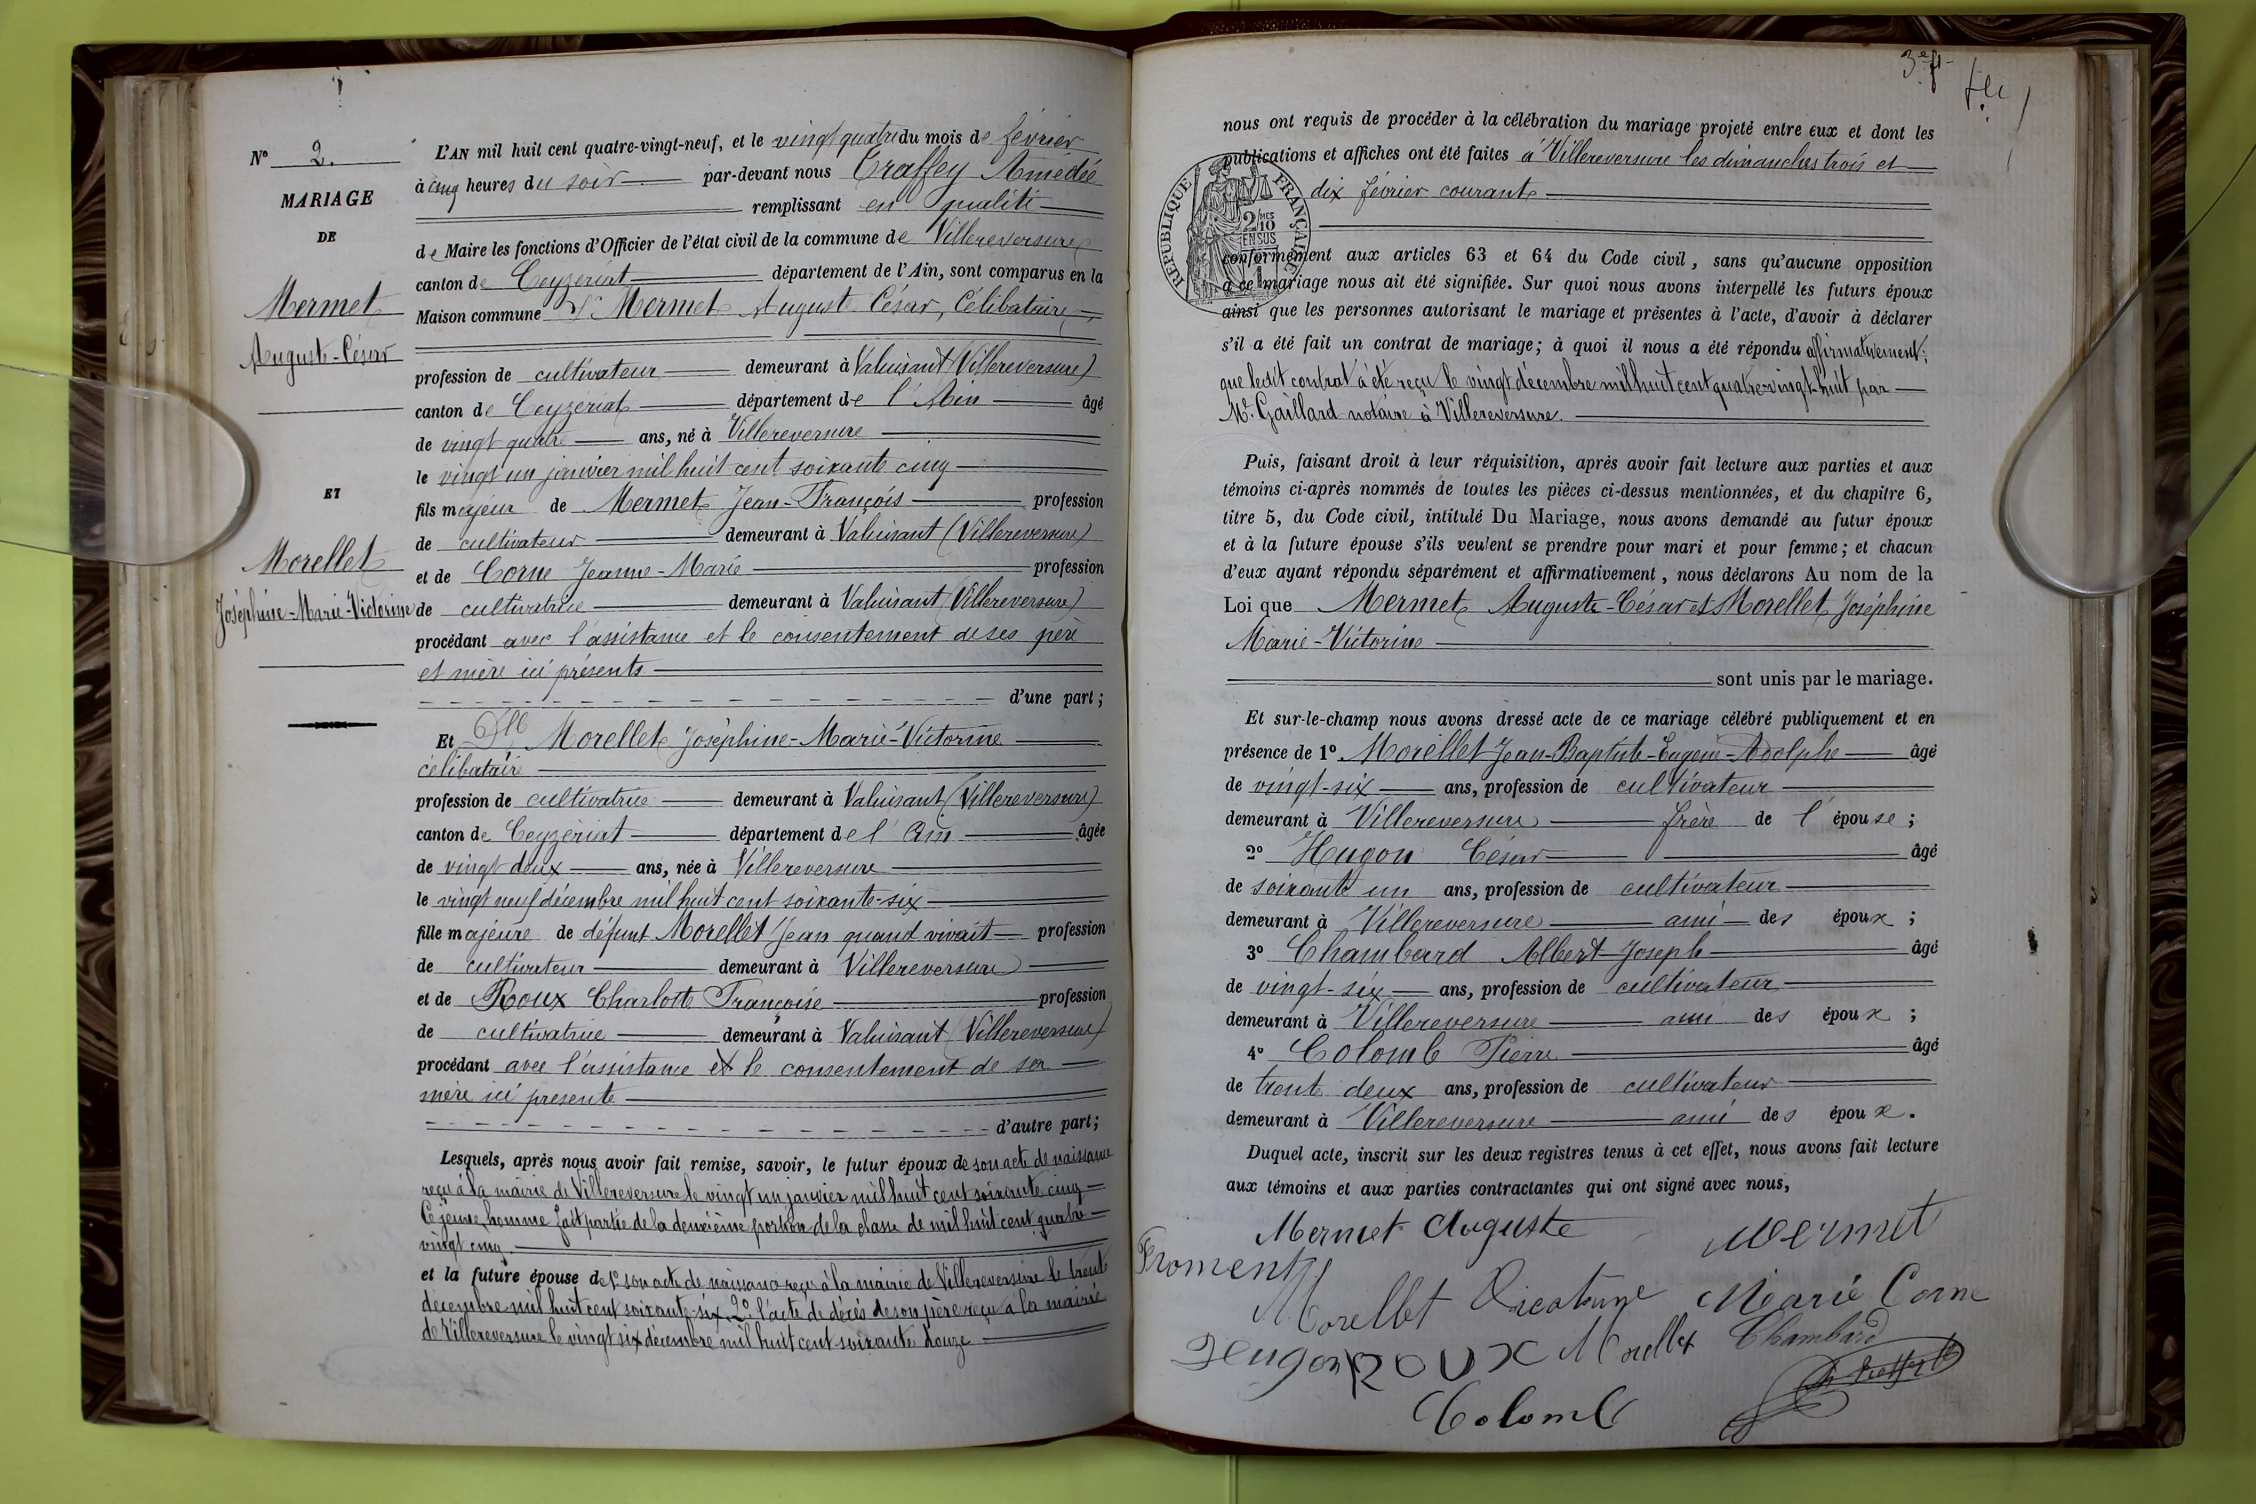 N° 2.
MARIAGE
DE
Mermet
Auguste-César
ET
Morellet
Joséphine-Marie-Victorine
L'AN mil huit cent quatre-vingt-neuf, et le vingt quatre du mois de février
à cinq heures du soir par-devant nous Traffey Amédée
remplissant en qualité
de Maire les fonctions d'Officier de l'état civil de la commune de Villereversure
canton de Ceyzeriat département de l'Ain, sont comparus en la
Maison commune Sr Mermet August César, Célibataire,
profession de cultivateur demeurant à Valuisant (Villereversure)
canton de Ceyzeriat département de l'Ain âgé
de vingt quatre ans, né à Villereversure
le vingt un janvier mil huit cent soixante cinq
fils majeur de Mermet Jean-François profession
de cultivateur demeurant à Valuisant (Villereversure)
et de Corne Jeanne-Marie profession
de cultivatrice demeurant à Valuisant (Villereversure)
procédant avec l'assistance et le consentement de ses père
et mère ici présents
d'une part;
Et Dlle Morellet Joséphine-Marie-Victorine
célibataire
profession de cultivatrice demeurant à Valuisant (Villereversure)
canton de Ceyzériat département de l'Ain âgée
de vingt deux ans, née à Villereversure
le vingt neuf décembre mil huit cent soixante-six
fille majeure de défunt Morellet Jean quand vivait profession
de cultivateur demeurant à Villereversure
et de Roux Charlotte Françoise profession
de cultivatrice demeurant à Valuisant (Villereversure)
procédant avec l'assistance et le consentement de sa
mère ici présente
d'autre part;
Lesquels, après nous avoir fait remise, savoir, le futur époux de son acte de naissance
reçu à la mairie de Villereversure le vingt un janvier mil huit cent soixante cinq
Ce jeune homme fait partie de la deuxième portion de la classe de mil huit cent quatre
vingt cinq.
et la future épouse de 1° son acte de naissance reçu à la mairie de Villereversure le trente
décembre mil huit cent soixante-six. 2° l'acte de décès de son père reçu à la mairie
de Villereversure le vingt six décembre mil huit cent soixante douze
3e f
nous ont requis de procéder à la célébration du mariage projeté entre eux et dont les
publications et affiches ont été faites à Villereversure les dimanches trois et
dix février courant
RÉPUBLIQUE FRANÇAISE
2/10MES
EN SUS
conformément aux articles 63 et 64 du Code civil, sans qu'aucune opposition
à ce mariage nous ait été signifiée. Sur quoi nous avons interpellé les futurs époux
ainsi que les personnes autorisant le mariage et présentes à l'acte, d'avoir à déclarer
s'il a été fait un contrat de mariage; à quoi il nous a été répondu affirmativement;
que ledit contrat à été reçu le vingt décembre mil huit cent quatre-vingt-huit par
Me. Gaillard notaire à Villereversure.
Puis, faisant droit à leur réquisition, après avoir fait lecture aux parties et aux
témoins ci-après nommés de toutes les pièces ci-dessus mentionnées, et du chapitre 6,
titre 5, du Code civil, intitulé Du Mariage, nous avons demandé au futur époux
et à la future épouse s'ils veulent se prendre pour mari et pour femme; et chacun
d'eux ayant répondu séparément et affirmativement, nous déclarons Au nom de la
Loi que Mermet Auguste-César et Morellet Joséphine
Marie-Victorine
sont unis par le mariage.
Et sur-le-champ nous avons dressé acte de ce mariage célébré publiquement et en
présence de 1° Morellet Jean-Baptiste-Eugène-Adolphe âgé
de vingt-six ans, profession de cultivateur
demeurant à Villereversure frère de l'épouse;
2° Hugon César âgé
de soixante un ans, profession de cultivateur
demeurant à Villereversure ami des époux;
3° Chambard Albert-Joseph âgé
de vingt-six ans, profession de cultivateur
demeurant à Villereversure ami des époux;
4° Colomb Pierre âgé
de trente deux ans, profession de cultivateur
demeurant à Villereversure ami des époux.
Duquel acte, inscrit sur les deux registres tenus à cet effet, nous avons fait lecture
aux témoins et aux parties contractantes qui ont signé avec nous,
Mermet Auguste Mermet
Froment
Morellet Marie Corne
Hugon ROUX Morellet Chambard
Colomb